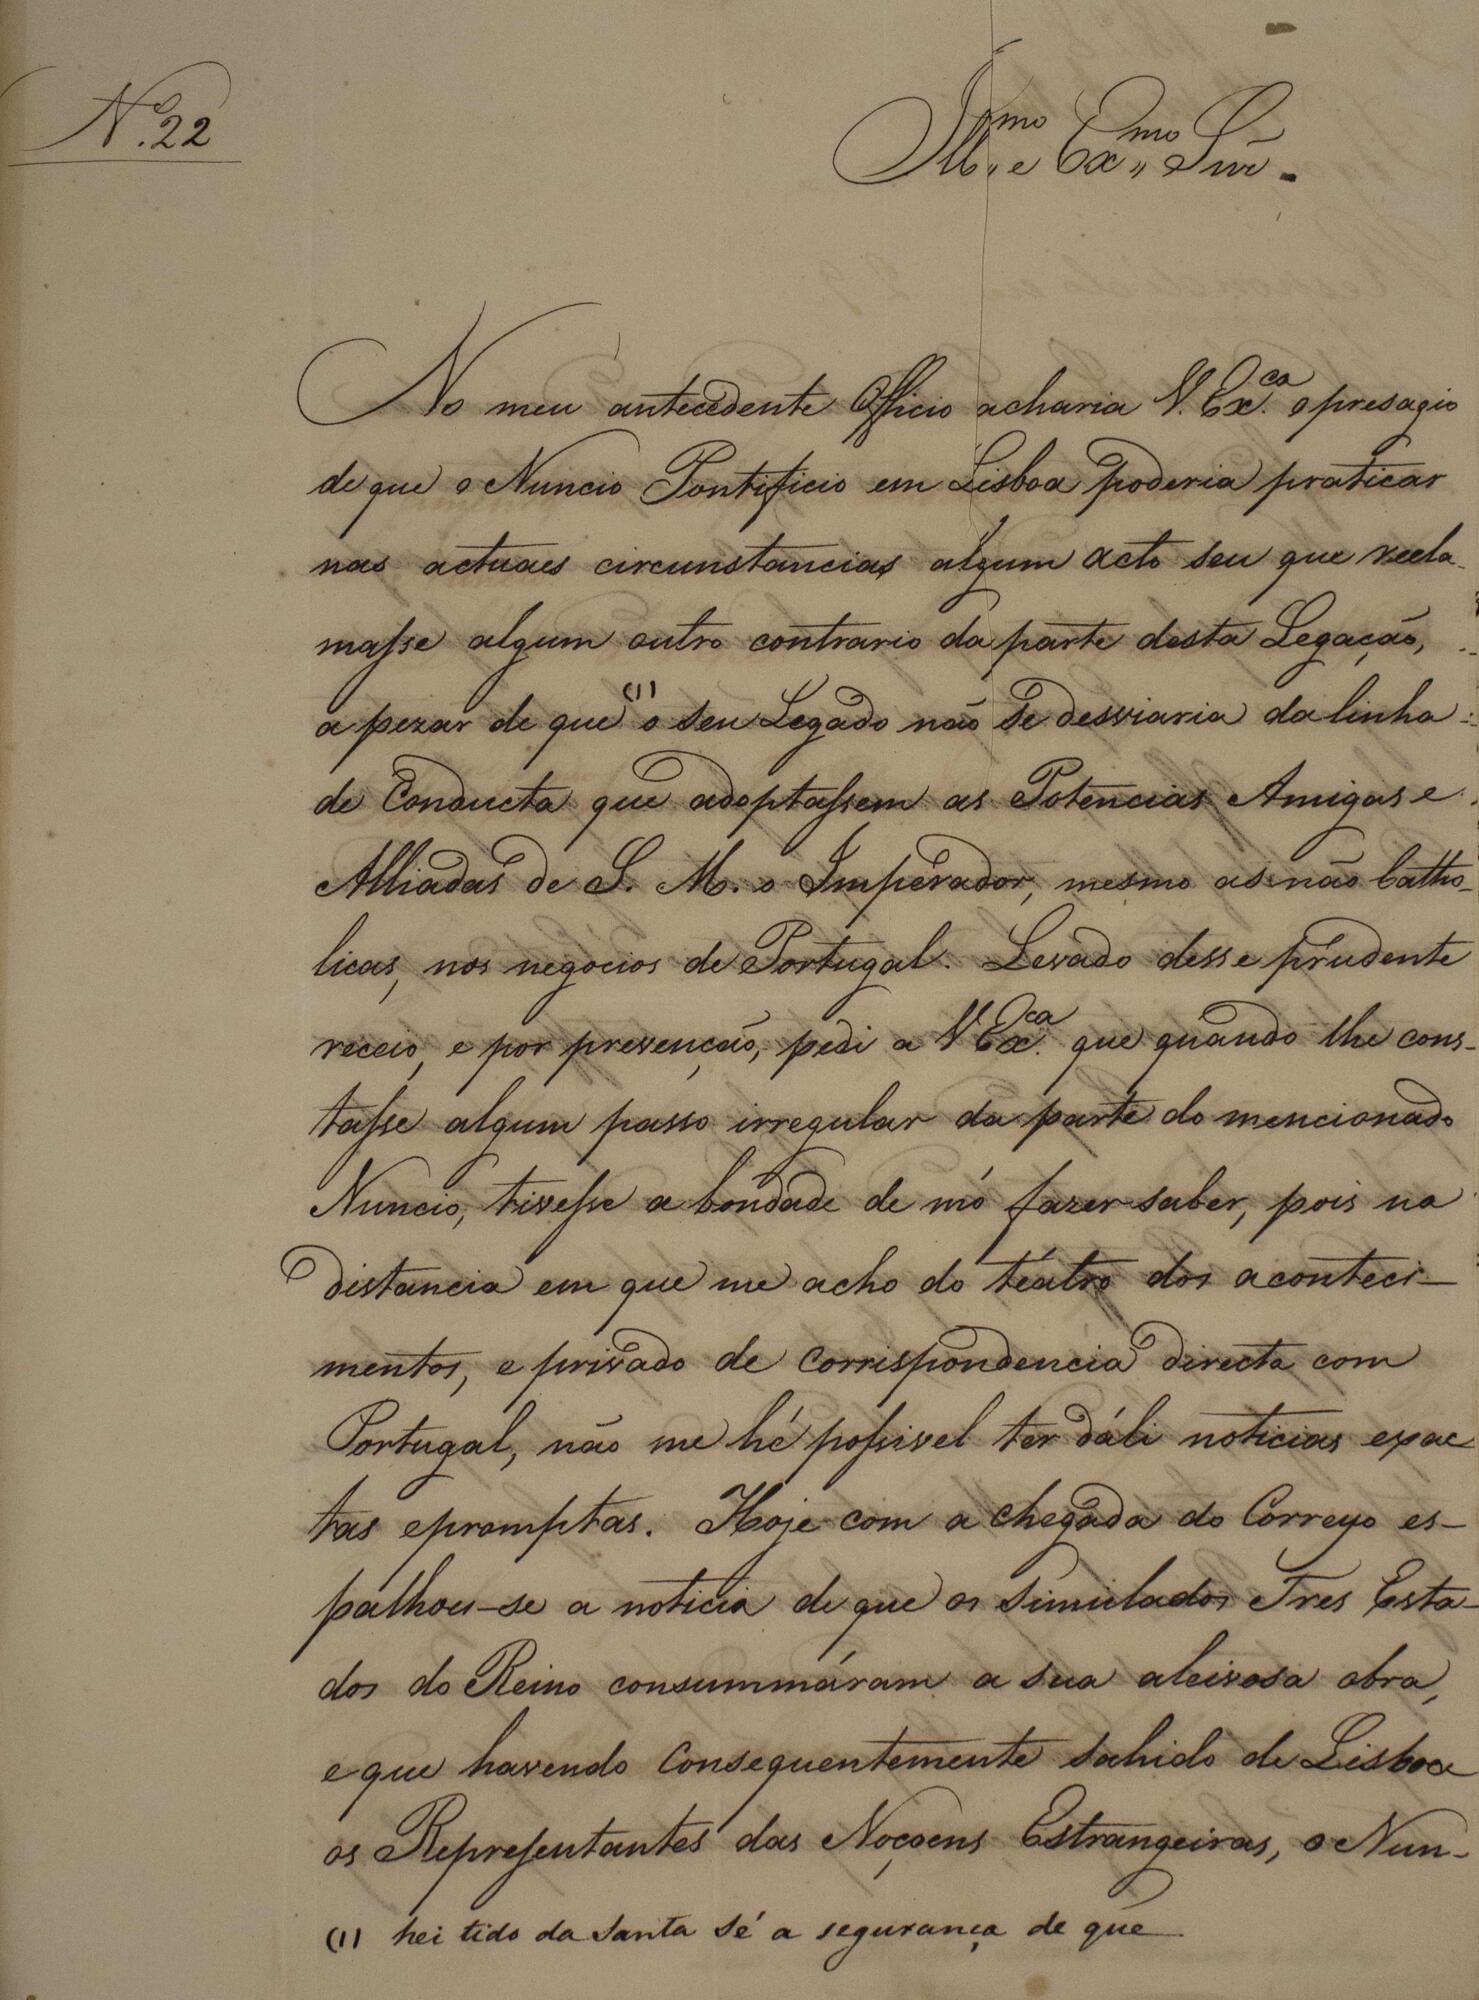 N.º 22
Ill.mo e Ex.mo Snr.
No meu antecedente Officio acharia V. Ex.ca o presagio
de que o Nuncio Pontificio em Lisboa poderia praticar
nas actuaes circunstancias algum acto seu que recla-
masse algum outro contrario da parte desta Legação,
a pezar de que (1) o seu Legado não se desviaria da linha
de Conducta que adoptassem as Potencias Amigas e
Alliadas de S. M. o Imperador, mesmo as não Catho-
licas, nos negocios de Portugal. Levado desse prudente
receio, e por prevenção, pedi a V Ex.ca que quando lhe cons-
tasse algum passo irregular da parte do mencionado
Nuncio, tivesse a bondade de mó fazer saber, pois na
distancia em que me acho do téatro dos aconteci-
mentos, e privado de corrispondencia directa com
Portugal, não me hé possivel ter dáli noticias exac
tas e promptas. Hoje com a chegada do Correyo es-
palhou-se a noticia de que os simulados Tres Esta-
dos do Reino consummáram a sua aleivosa obra,
e que havendo consequentemente sahido de Lisboa
os Representantes das Naçoens Estrangeiras, o Nun-
(1) hei tido da Santa Sé a segurança de que